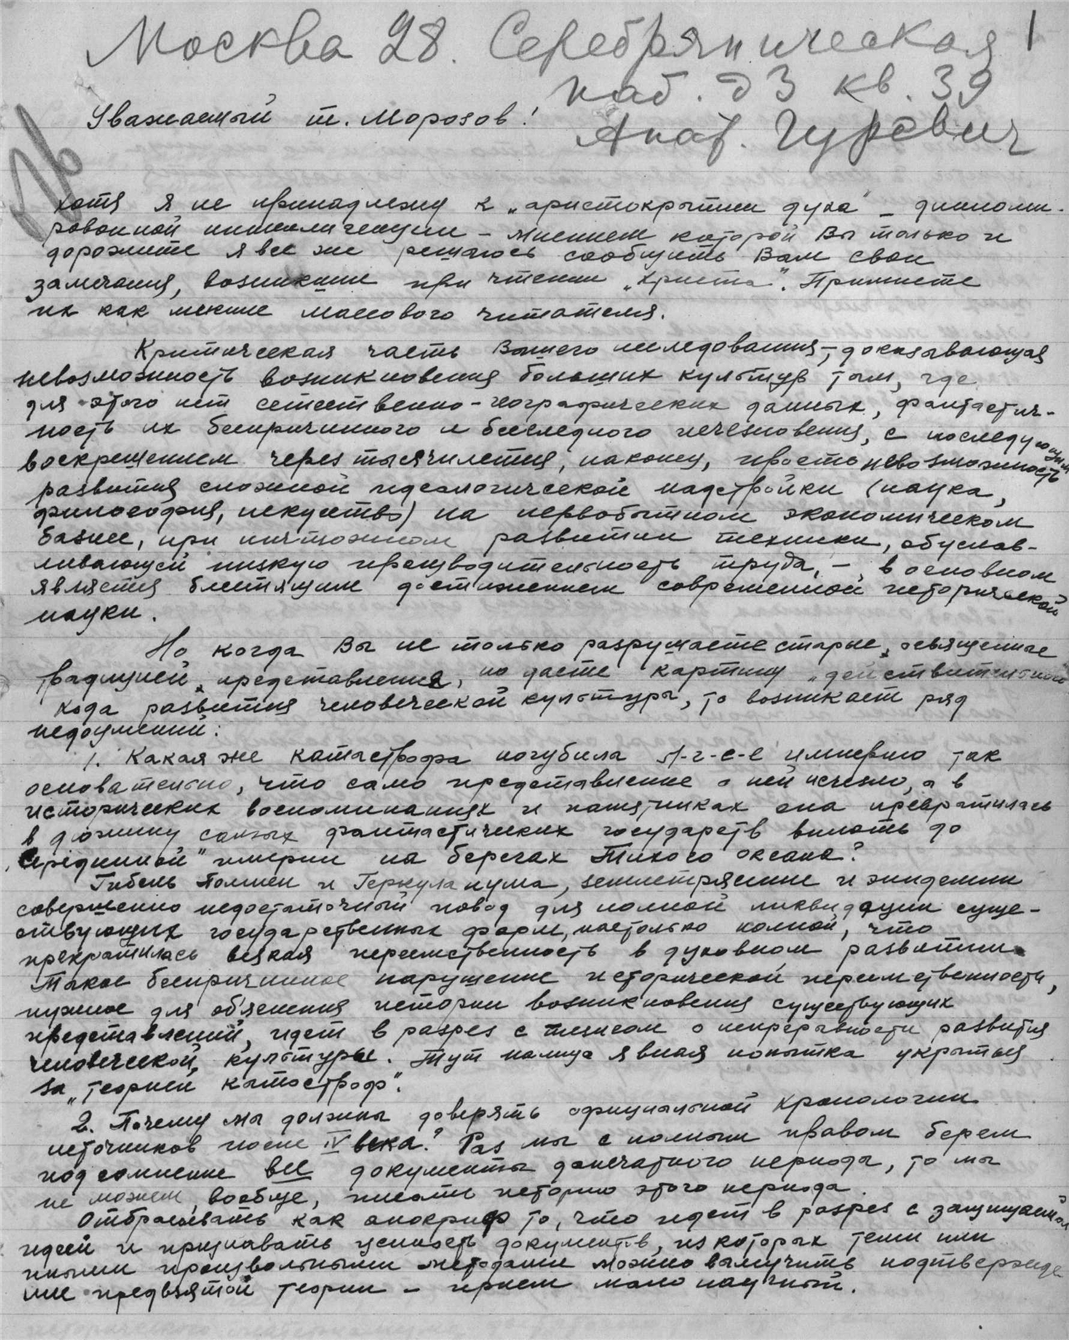 Москва 28. Серебряническая 1
наб. д 3 кв. 39
Уважаемый т. Морозов!
Анат. Гуревич
хотя я не принадлежу к „аристократии духа" – дипломи-
рованной интеллигенции – мнением которой Вы только и
дорожите я все же решаюсь сообщить Вам свои
замечания, возникшие при чтении „Христа". Примите
их как мнение массового читателя.
Критическая часть Вашего исследования, – доказывающая
невозможность возникновения больших культур там, где
для этого нет естественно-географических данных, фантастич-
ность их беспричинного и бесследного исчезновения, с последующим
воскрешением через тысячилетия, наконец, просто невозможность
развития сложной идеологической надстройки (наука,
философия, искусство) на первобытном экономическом
базисе, при ничтожном развитии техники, обуслав-
ливающей низкую производительность труда, – в основном
является блестящим достижением современной исторической
науки.
Но когда Вы не только разрушаете старые, освященные
традицией, представления, но даете картину „действительного"
хода развития человеческой культуры, то возникает ряд
недоумений:
1. Какая же катастрофа погубила А-г-с-е империю так
основательно, что само представление о ней исчезло, а в
исторических воспоминаниях и памятниках она превратилась
в дюжину самых фантастических государств вплоть до
„Серединной" империи на берегах Тихого океана?
Гибель Помпеи и Геркуланума, землетрясение и эпидемии
совершенно недостаточный повод для полной ликвидации суще-
ствующих государственных форм, настолько полной, что
прекратилась всякая преемственность в духовном развитии.
Такое беспричинное нарушение исторической переемственности,
нужное для объяснения истории возникновения существующих
представлений, идет в разрез с тезисом о непрерывности развития
человеческой культуры. Тут налицо явная попытка укрыться
за „теорией катастроф".
2. Почему мы должны доверять официальной хронологии
источников после IV века? Раз мы с полным правом берем
под сомнение все документы допечатного периода, то мы
не можем, вообще, писать историю этого периода.
Отбрасывать как апокриф то, что идет в разрез с защищаемой
идеей и признавать ценность документов, из которых теми или
иными произвольными методами можно вымучить подтвержде
ние предвзятой теории – прием мало научный.